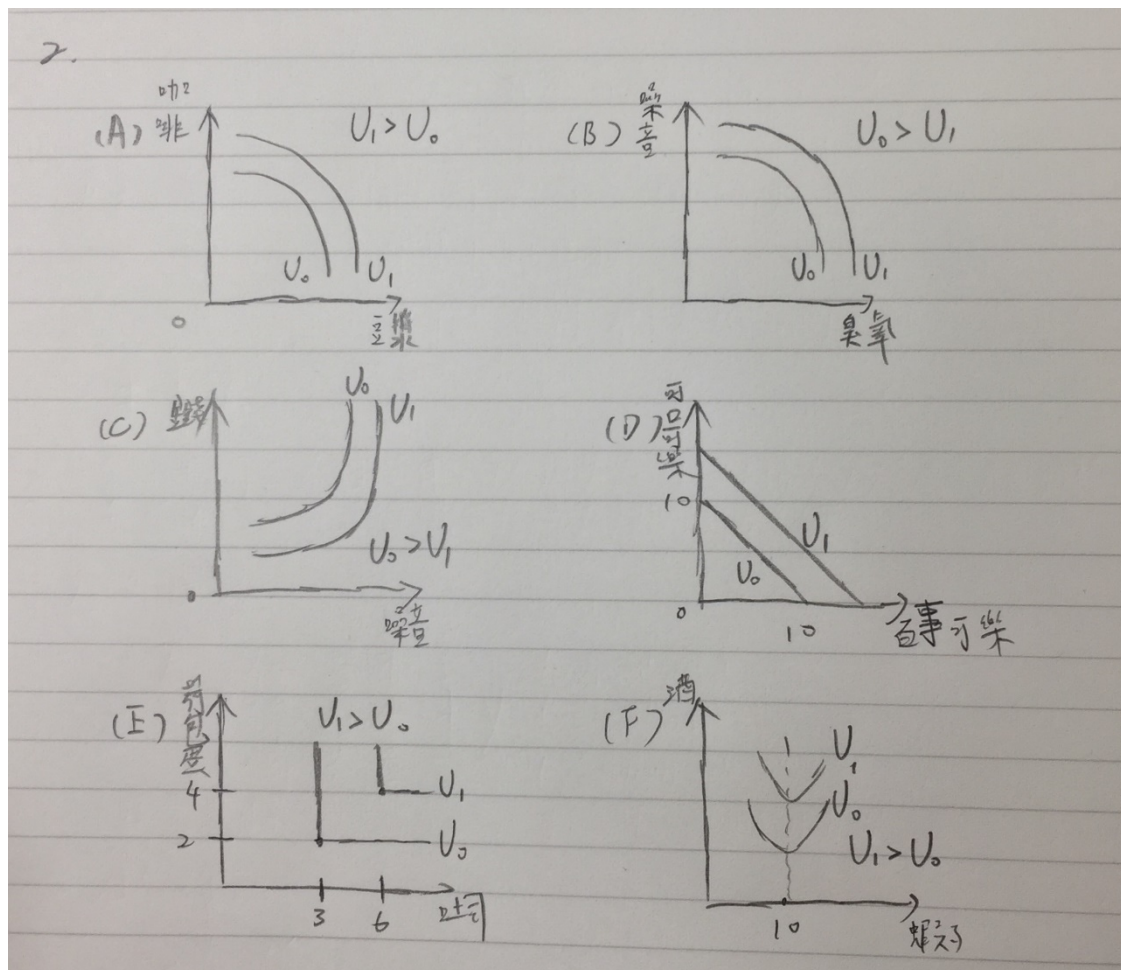 2.
(A) 咖啡
U₁ > U₀
U₀ U₁
0
豆漿
(B) 噪音
U₀ > U₁
U₀ U₁
臭氧
(C)
U₀ U₁
U₀ > U₁
0
噪音
(D) 可口可樂
10
U₁
U₀
0
10
百事可樂
(E)
U₁ > U₀
4
U₁
2
U₀
3 6
吐司
(F) 酒
U₁
U₀
U₁ > U₀
10